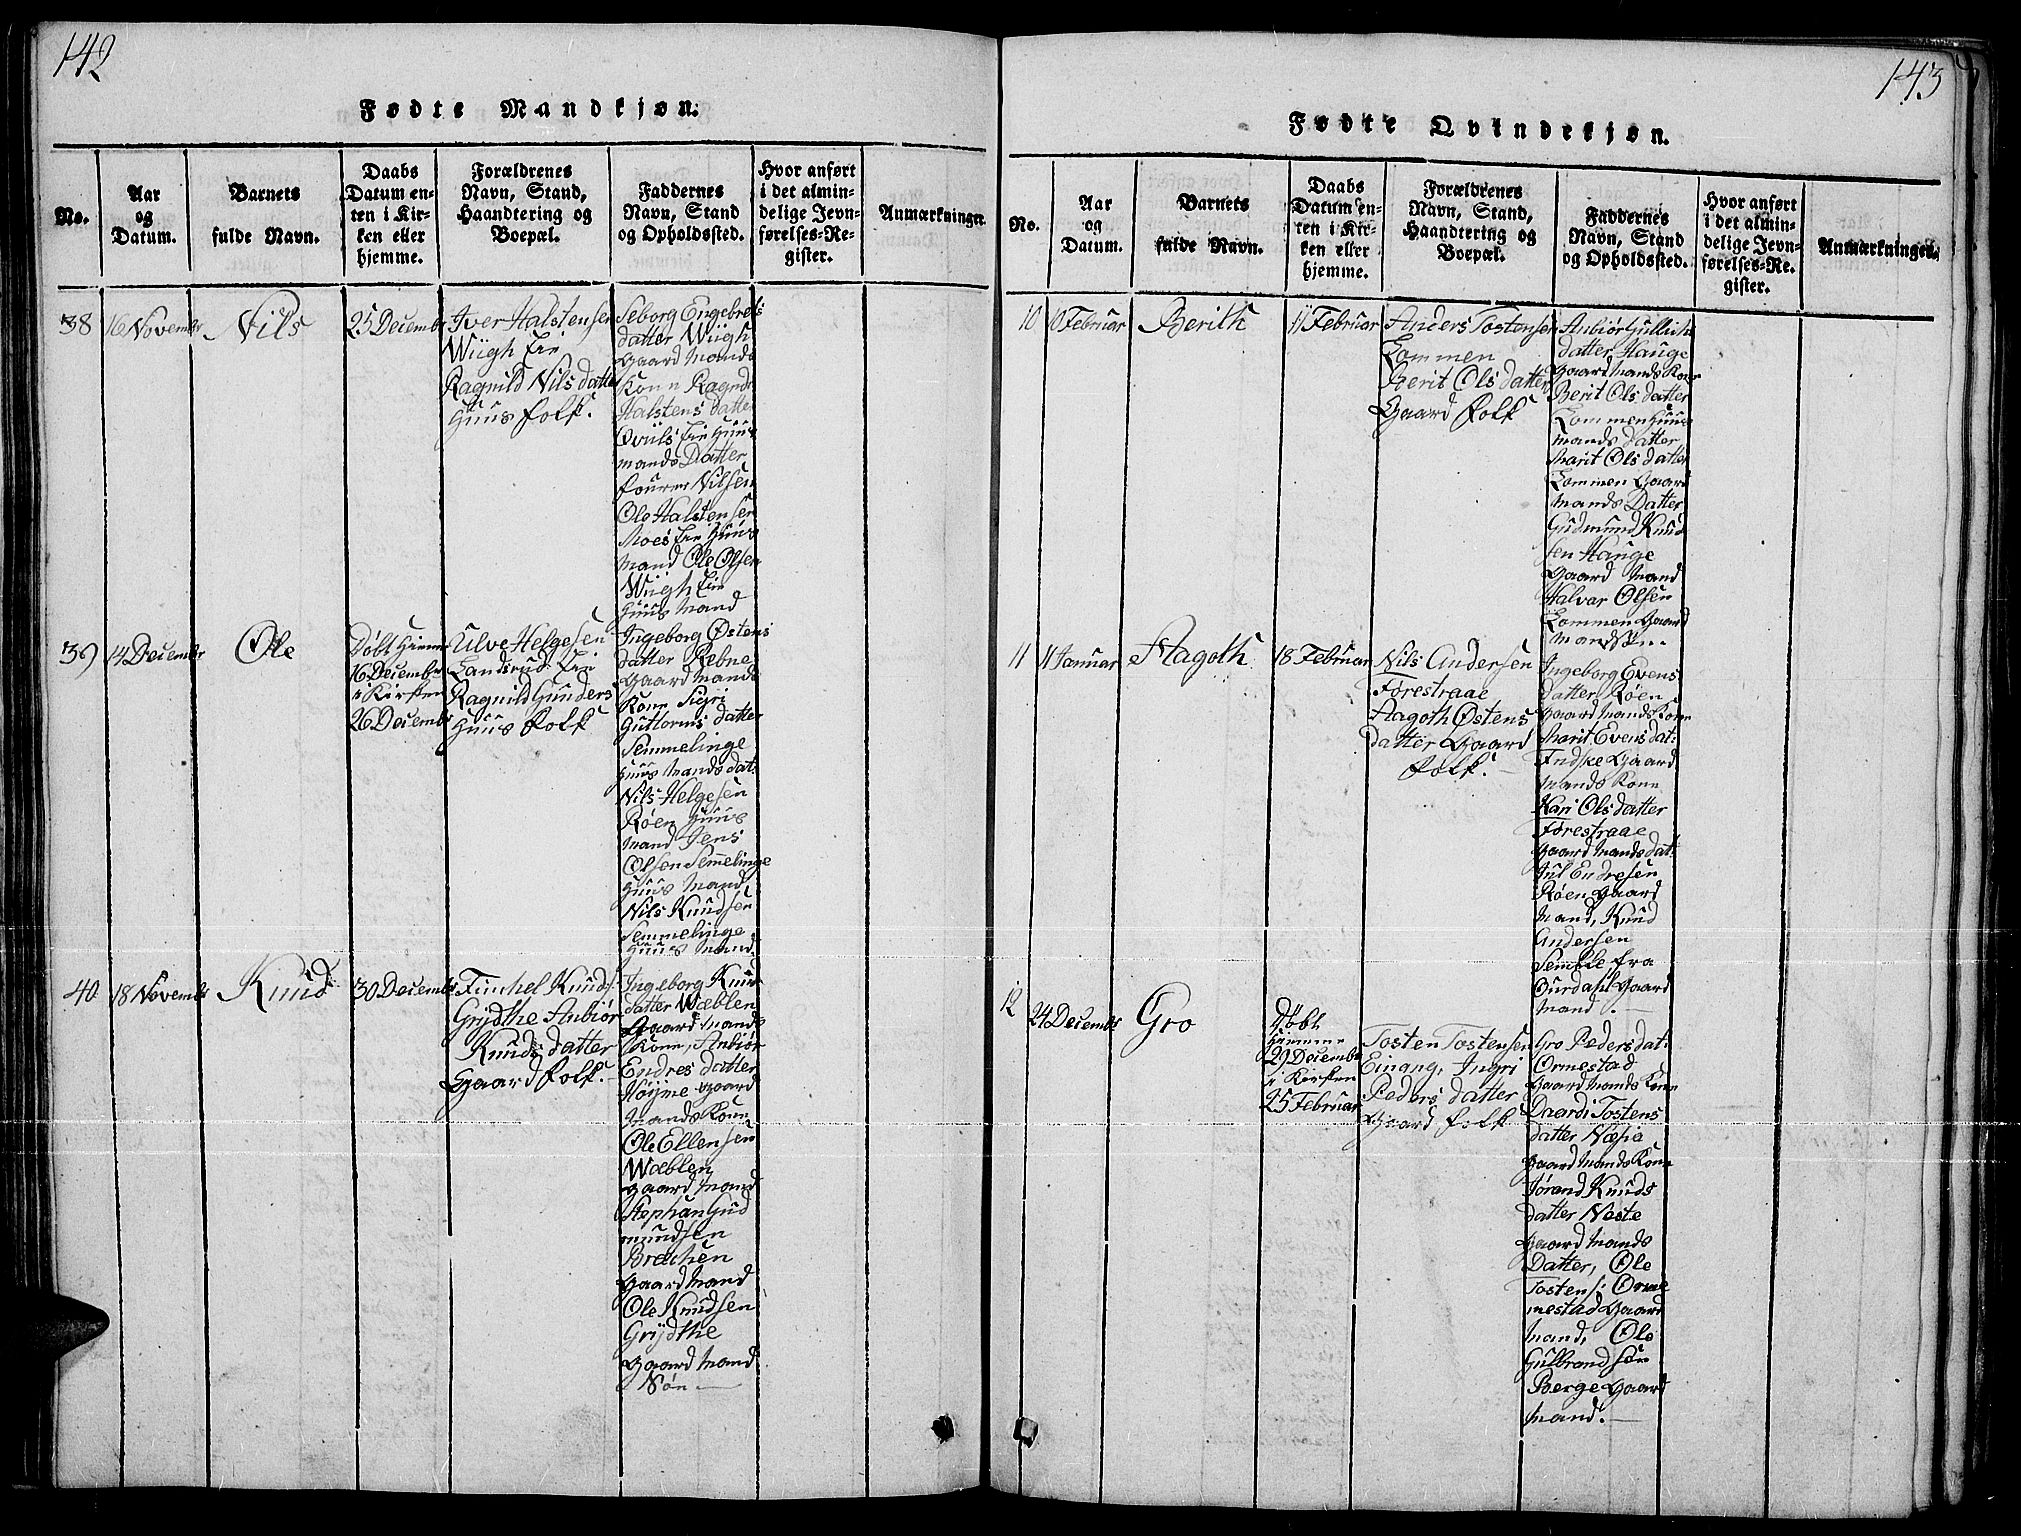 142
Fødte Mandkjøn.
No.
Aar
og
Datum.
Barnets
fulde Navn.
Daabs
Datum en-
ten i Kir-
ken eller
hjemme.
Forældrenes
Navn, Stand,
Haandtering og
Boepæl.
Faddernes
Navn, Stand
og Opholdssted.
Hvor anført
i det almin-
delige Jevn-
førelses-Re-
gister.
Anmærkninger.
38
16 Novembr
Nils
25 Decembr
Iver Halstensen
Wiigh Eie
Ragnild Nils datter
Huus folk.
Seborg Engebrets
datter Wiigh
Gaard Mands
Kone Ragnild
Halstens datter
Qviils Eie Huus
mands Datter
Nilsen
Ole Halstensen
Moes Eie Huus
mand Ole Olsen
Wiigh Eie
Huus Mand
39
14 Decembr
Ole
Døbt Hiemme
16 Decembr
i Kirken
26 Decembr
Ulve Helgesen
Landsrud Eie
Ragnild Gunders
Huus folk
Ingeborg Østens
datter Rebne
Gaard Mands
Kone Sigri
Guttorms datter
Semmelinge
Huus Mands dat:
Nils Helgesen
Røen Huus
Mand Jens
Olsen Semmelinge
Huus Mand
Nils Knudsen
Semmelinge
Huus Mand.
40
18 Novembr
Knud
30 Decembr
Finchel Knuds:
Grydthe Anbiør
Knuds datter
Gaard folk.
Ingeborg Knuds
datter Wæblen
Gaard Mands
Kone, Anbiør
Endres datter
Høyme Gaard
Mands Kone
Ole Ellensen
Wæblen
Gaard Mand
Stephan Gud
mundsen
Bræchen
Gaard Mand
Ole Knudsen
Grydthe
Gaard Mand
Søn
143
Fødte Qvindekjøn.
No.
Aar
og
Datum.
Barnets
fulde Navn.
Daabs
Datum en-
ten i Kir-
ken eller
hjemme.
Forældrenes
Navn, Stand,
Haandtering og
Boepæl.
Faddernes
Navn, Stand
og Opholdssted.
Hvor anført
i det almin-
delige Jevn-
førelses-Re-
gister.
Anmærkninger.
10
10 Februar
Berith
11 Februar
Anders Tostensen
Lommen
Berit Ols datter
Gaard folk
Anbiør Gulliche
datter Hauge
Gaard Mands Kone
Berit Ols datter
Lommen Huus
mands datter
Marit Ols datter
Lommen Gaard
Mands Datter
Gudmund Knud
sen Hauge
Gaard Mand
Halvar Olsen
Lommen Gaard
Mand Søn.
11
11 Januar
Aagoth
18 Februar
Nils Andersen
Førestraae
Aagoth Østens
datter Gaard
folk.
Ingeborg Evens
datter Røen
Gaard Mands Kone
Marit Evens dat:
Fudske Gaard
Mands Kone
Kari Ols datter
Førestraae
Gaard Mands dat:
Juul Endresen
Røen Gaard
Mand, Knud
Andersen
Semkle fra
Ourdahl Gaard
Mand.
12
24 Decembr
Gro
Døbt
Hiemme
29 Decembr
i Kirken
25 Februar
Tosten Tostensen
Einang, Ingri
Peders datter
Gaard folk
Gro Peders dat:
Ormestad
Gaard Mands Kone
Daardi Tostens
datter Næsie
Gaard Mands Kone
Jørand Knuds
datter Neste
Gaard Mands
Datter, Ole
Tostens: Orme
mestad Gaard
Mand, Ole
Gulbrandsøn
Berge Gaard
Mand.